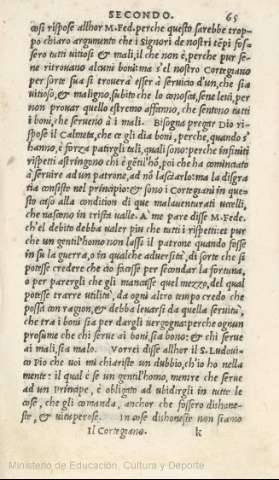 SECONDO. 65
cosi rispose allhor M. Fed. perche questo sarebbe trop
po chiaro argumento che i Signori de nostri tẽpi fos=
sero tutti uitiosi & mali, il che non è, perche pur se
ne ritrouano alcuni boni: ma s'el nostro Cortegiano
per sorte sua si trouerà esser à seruicio d'un, che sia
uitioso, & maligno, subito che lo conosca, se ne leui, per
non prouar quello estremo affanno, che sentono tutti
i boni, che serueno à i mali. Bisogna pregar Dio ri=
spose il Calmeta, che ce gli dia boni, perche, quando s'
hanno, è forza patirgli tali, quali sono: perche infiniti
rispetti astringono chi è gẽtil'hõ, poi che ha cominciato
à seruire ad un patrone, ad nõ lasciarlo: ma la disgra
tia consiste nel principio: & sono i Cortegiani in que=
sto caso alla condition di que maluenturati uccelli,
che nascono in trista ualle. A' me pare disse M. Fede.
ch'el debito debba ualer piu che tutti i rispetti: et pur
che un gentil'homo non lassi il patrone quando fosse
in su la guerra, o in qualche aduersità, di sorte che si
potesse credere che ciò facesse per secondar la fortuna,
o per parergli che gli mancasse quel mezzo, del qual
potesse trarre utilità, da ogni altro tempo credo che
possa con ragion, & debba leuarsi da quella seruitù,
che tra i boni sia per dargli uergogna: perche ognun
prosume che chi serue ai boni, sia bono: & chi serue
ai mali, sia malo. Vorrei disse allhor il S. Ludoui=
co Pio che uoi mi chiariste un dubbio, ch'io ho nella
mente: il qual è se un gentil'homo, mentre che serue
ad un Principe, è obligato ad ubidirgli in tutte le
cose, che gli comanda, anchor che fossero dishone=
ste, & uituperose. In cose dishoneste non siamo
Il Cortegiano. k
Ministerio de Educación, Cultura y Deporte